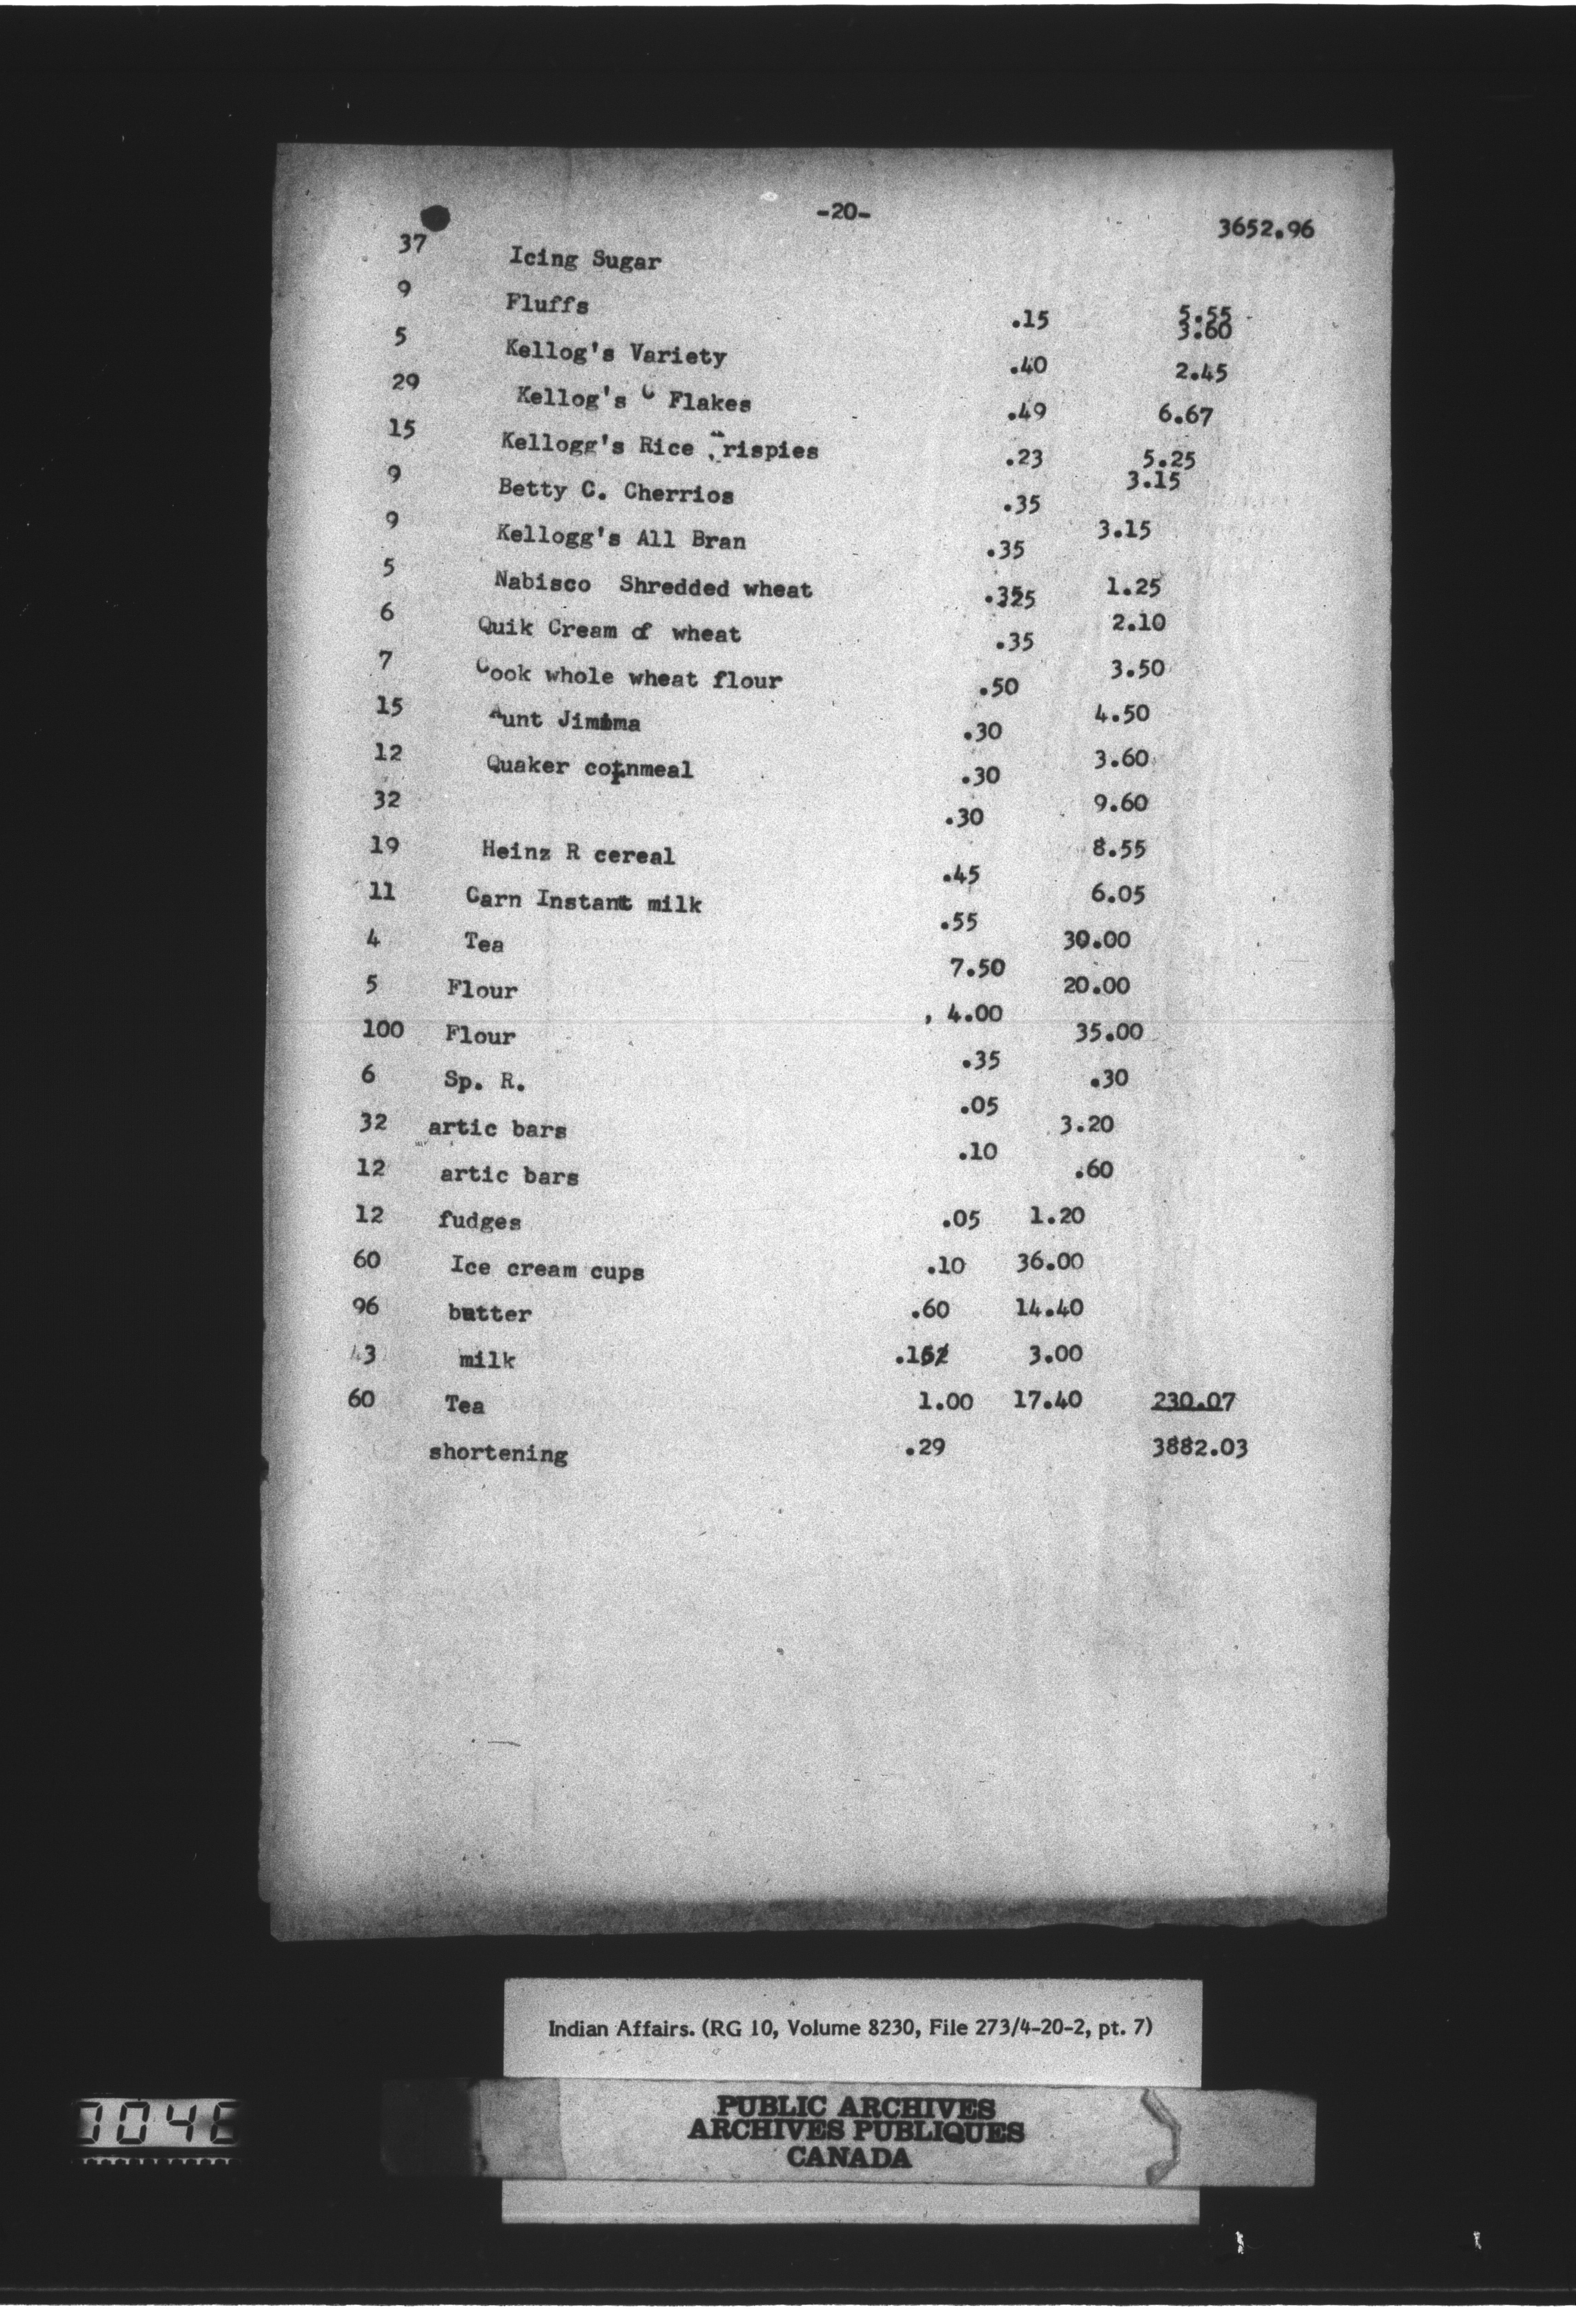 -20-
3652.96
37 Icing Sugar .15 5.55
9 Fluffs .40 3.60
5 Kellog's Variety .49 2.45
29 Kellog's C Flakes .23 6.67
15 Kellogg's Rice Krispies .35 5.25
9 Betty C. Cherrios .35 3.15
9 Kellogg's All Bran .35 3.15
5 Nabisco Shredded wheat .25 1.25
6 Quik Cream of wheat .35 2.10
7 Cook whole wheat flour .50 3.50
15 Aunt Jimima .30 4.50
12 Quaker cornmeal .30 3.60
32 .30 9.60
19 Heinz R cereal .45 8.55
11 Carn Instant milk .55 6.05
4 Tea 7.50 30.00
5 Flour 4.00 20.00
100 Flour .35 35.00
6 Sp. R. .05 .30
32 artic bars .10 3.20
12 artic bars .05 .60
12 fudges .10 1.20
60 Ice cream cups .60 36.00
96 butter .15 14.40
3 milk 1.00 3.00
60 Tea .29 17.40 230.07
shortening 3882.03
Indian Affairs. (RG 10, Volume 8230, File 273/4-20-2, pt. 7)
PUBLIC ARCHIVES
ARCHIVES PUBLIQUES
CANADA